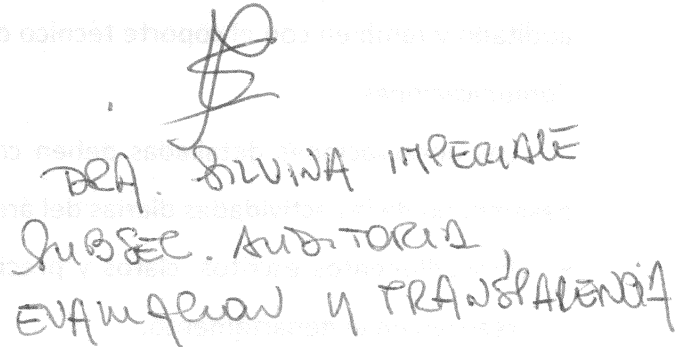 DRA. SILVINA IMPERIALE
SUBSEC. AUDITORIA,
EVALUACION Y TRANSPARENCIA